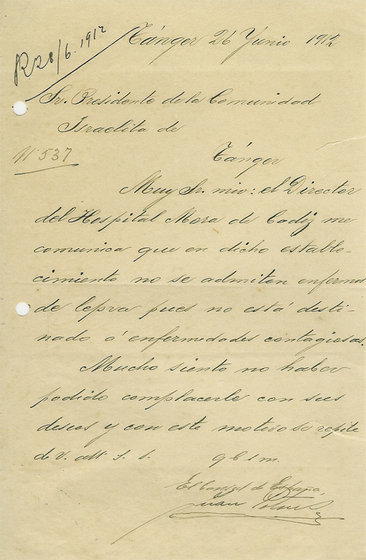 R 28/6 1912
Tánger 26 Junio 1912
Sr. Presidente de la Comunidad
Israelita de
Nº 537
Tánger
Muy Sr. mio: el Director
del Hospital Mora de Cadiz me
comunica que en dicho estable-
cimiento no se admiten enfermos
de lepra pues no está desti-
nado á enfermedades contagiosas.
Mucho siento no haber
podido complacerle con sus
deseos y con este motivo se repite
de V. att. s. s.
q b s m.
El Consul de España,
Juan